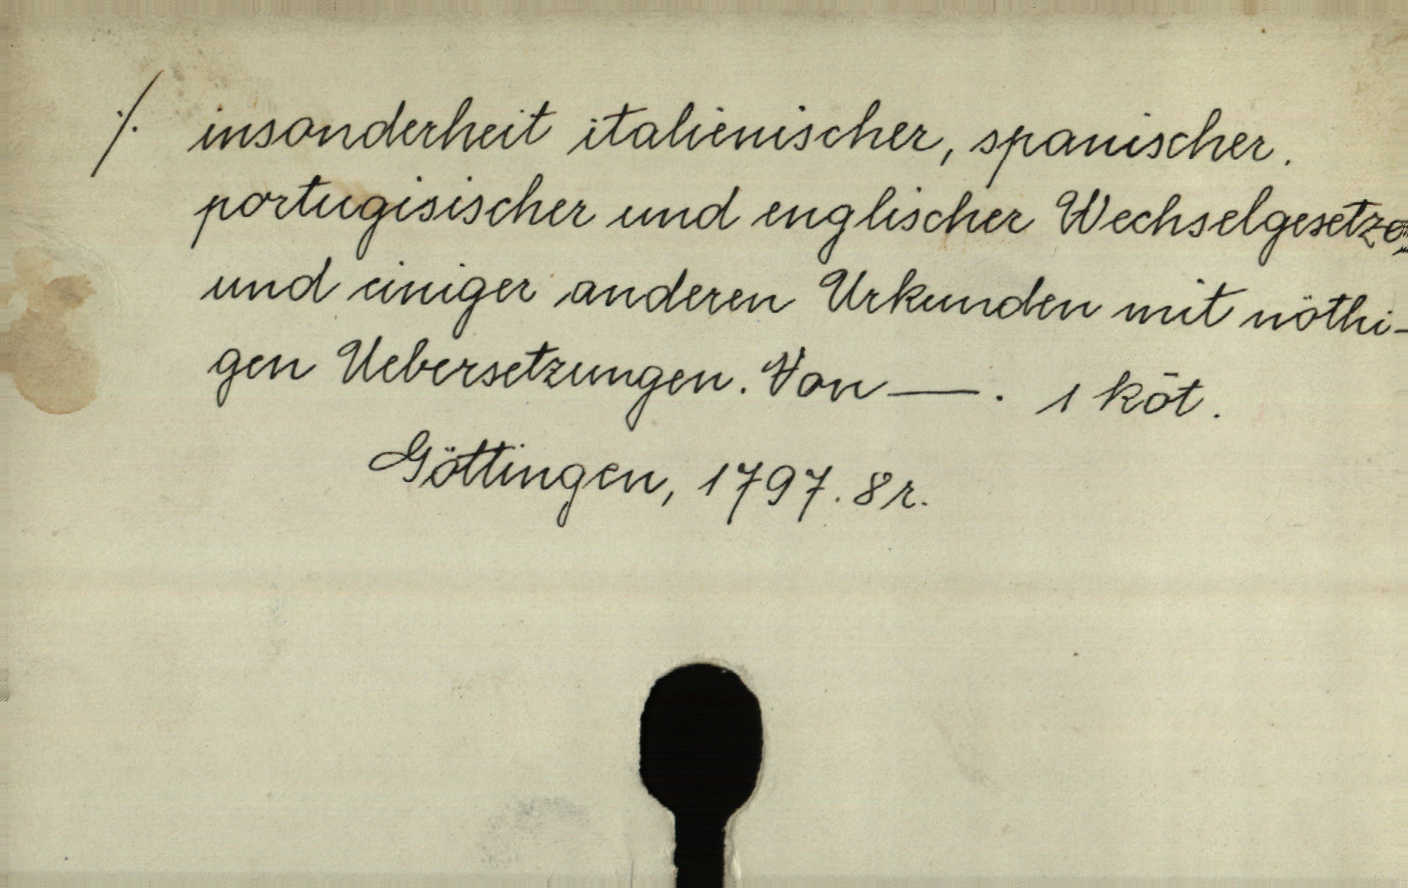 ./. insonderheit italienischer, spanischer.
portugisischer und englischer Wechselgesetze
und einiger anderen Urkunden mit nöthi-
gen Uebersetzungen. Von —. 1 köt.
Göttingen, 1797. 8r.